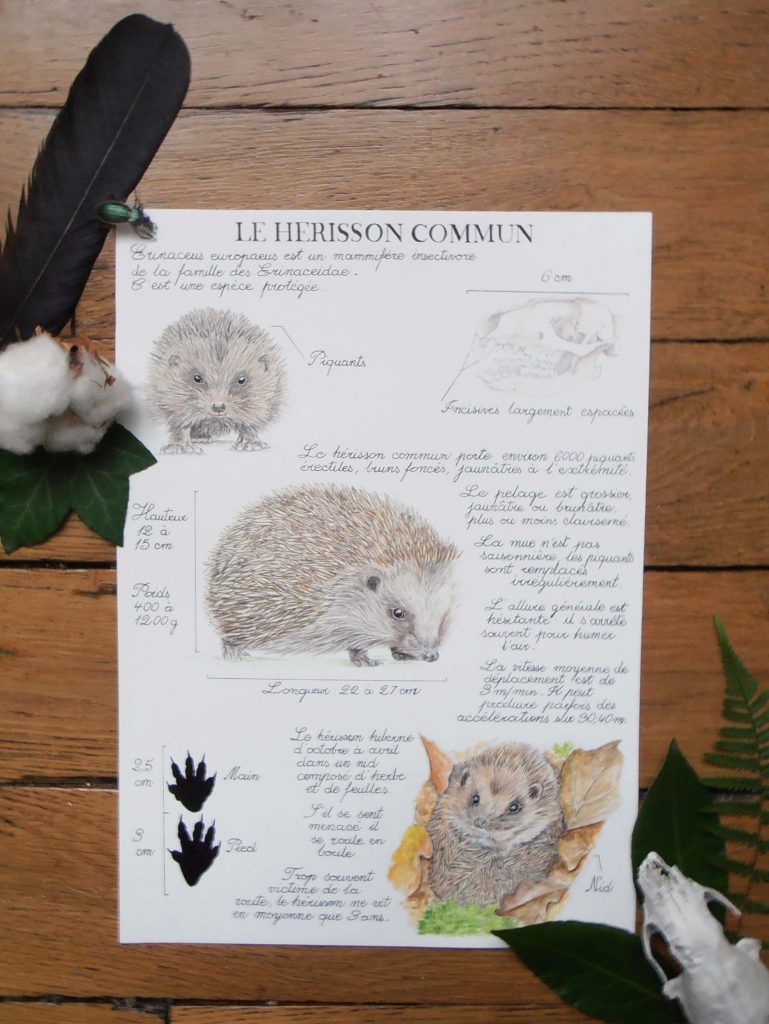 LE HERISSON COMMUN
Erinaceus europaeus est un mammifère insectivore
de la famille des Erinaceidae.
C'est une espèce protégée.
6 cm
Piquants
Incisives largement espacées
Le hérisson commun porte environ 6000 piquants
érectiles, bruns foncés, jaunâtres à l'extrémité.
Hauteur
12 à
15 cm
Poids
400 à
1200g
Le pelage est grossier,
jaunâtre ou brunâtre,
plus ou moins clairsemé.
La mue n'est pas
saisonnière, les piquants
sont remplacés
irrégulièrement.
L'allure générale est
hésitante il s'arrête
souvent pour humer
l'air.
La vitesse moyenne de
déplacement est de
3 m/min. Il peut
produire parfois des
accélérations sur 30,40m.
Longueur 22 à 27 cm
2,5
cm
Main
3
cm
Pied
Le hérisson hiberne
d'octobre à avril
dans un nid
composé d'herbe
et de feuilles.
S'il se sent
menacé il
se roule en
boule.
Trop souvent
victime de la
route, le hérisson ne vit
en moyenne que 3 ans.
Nid